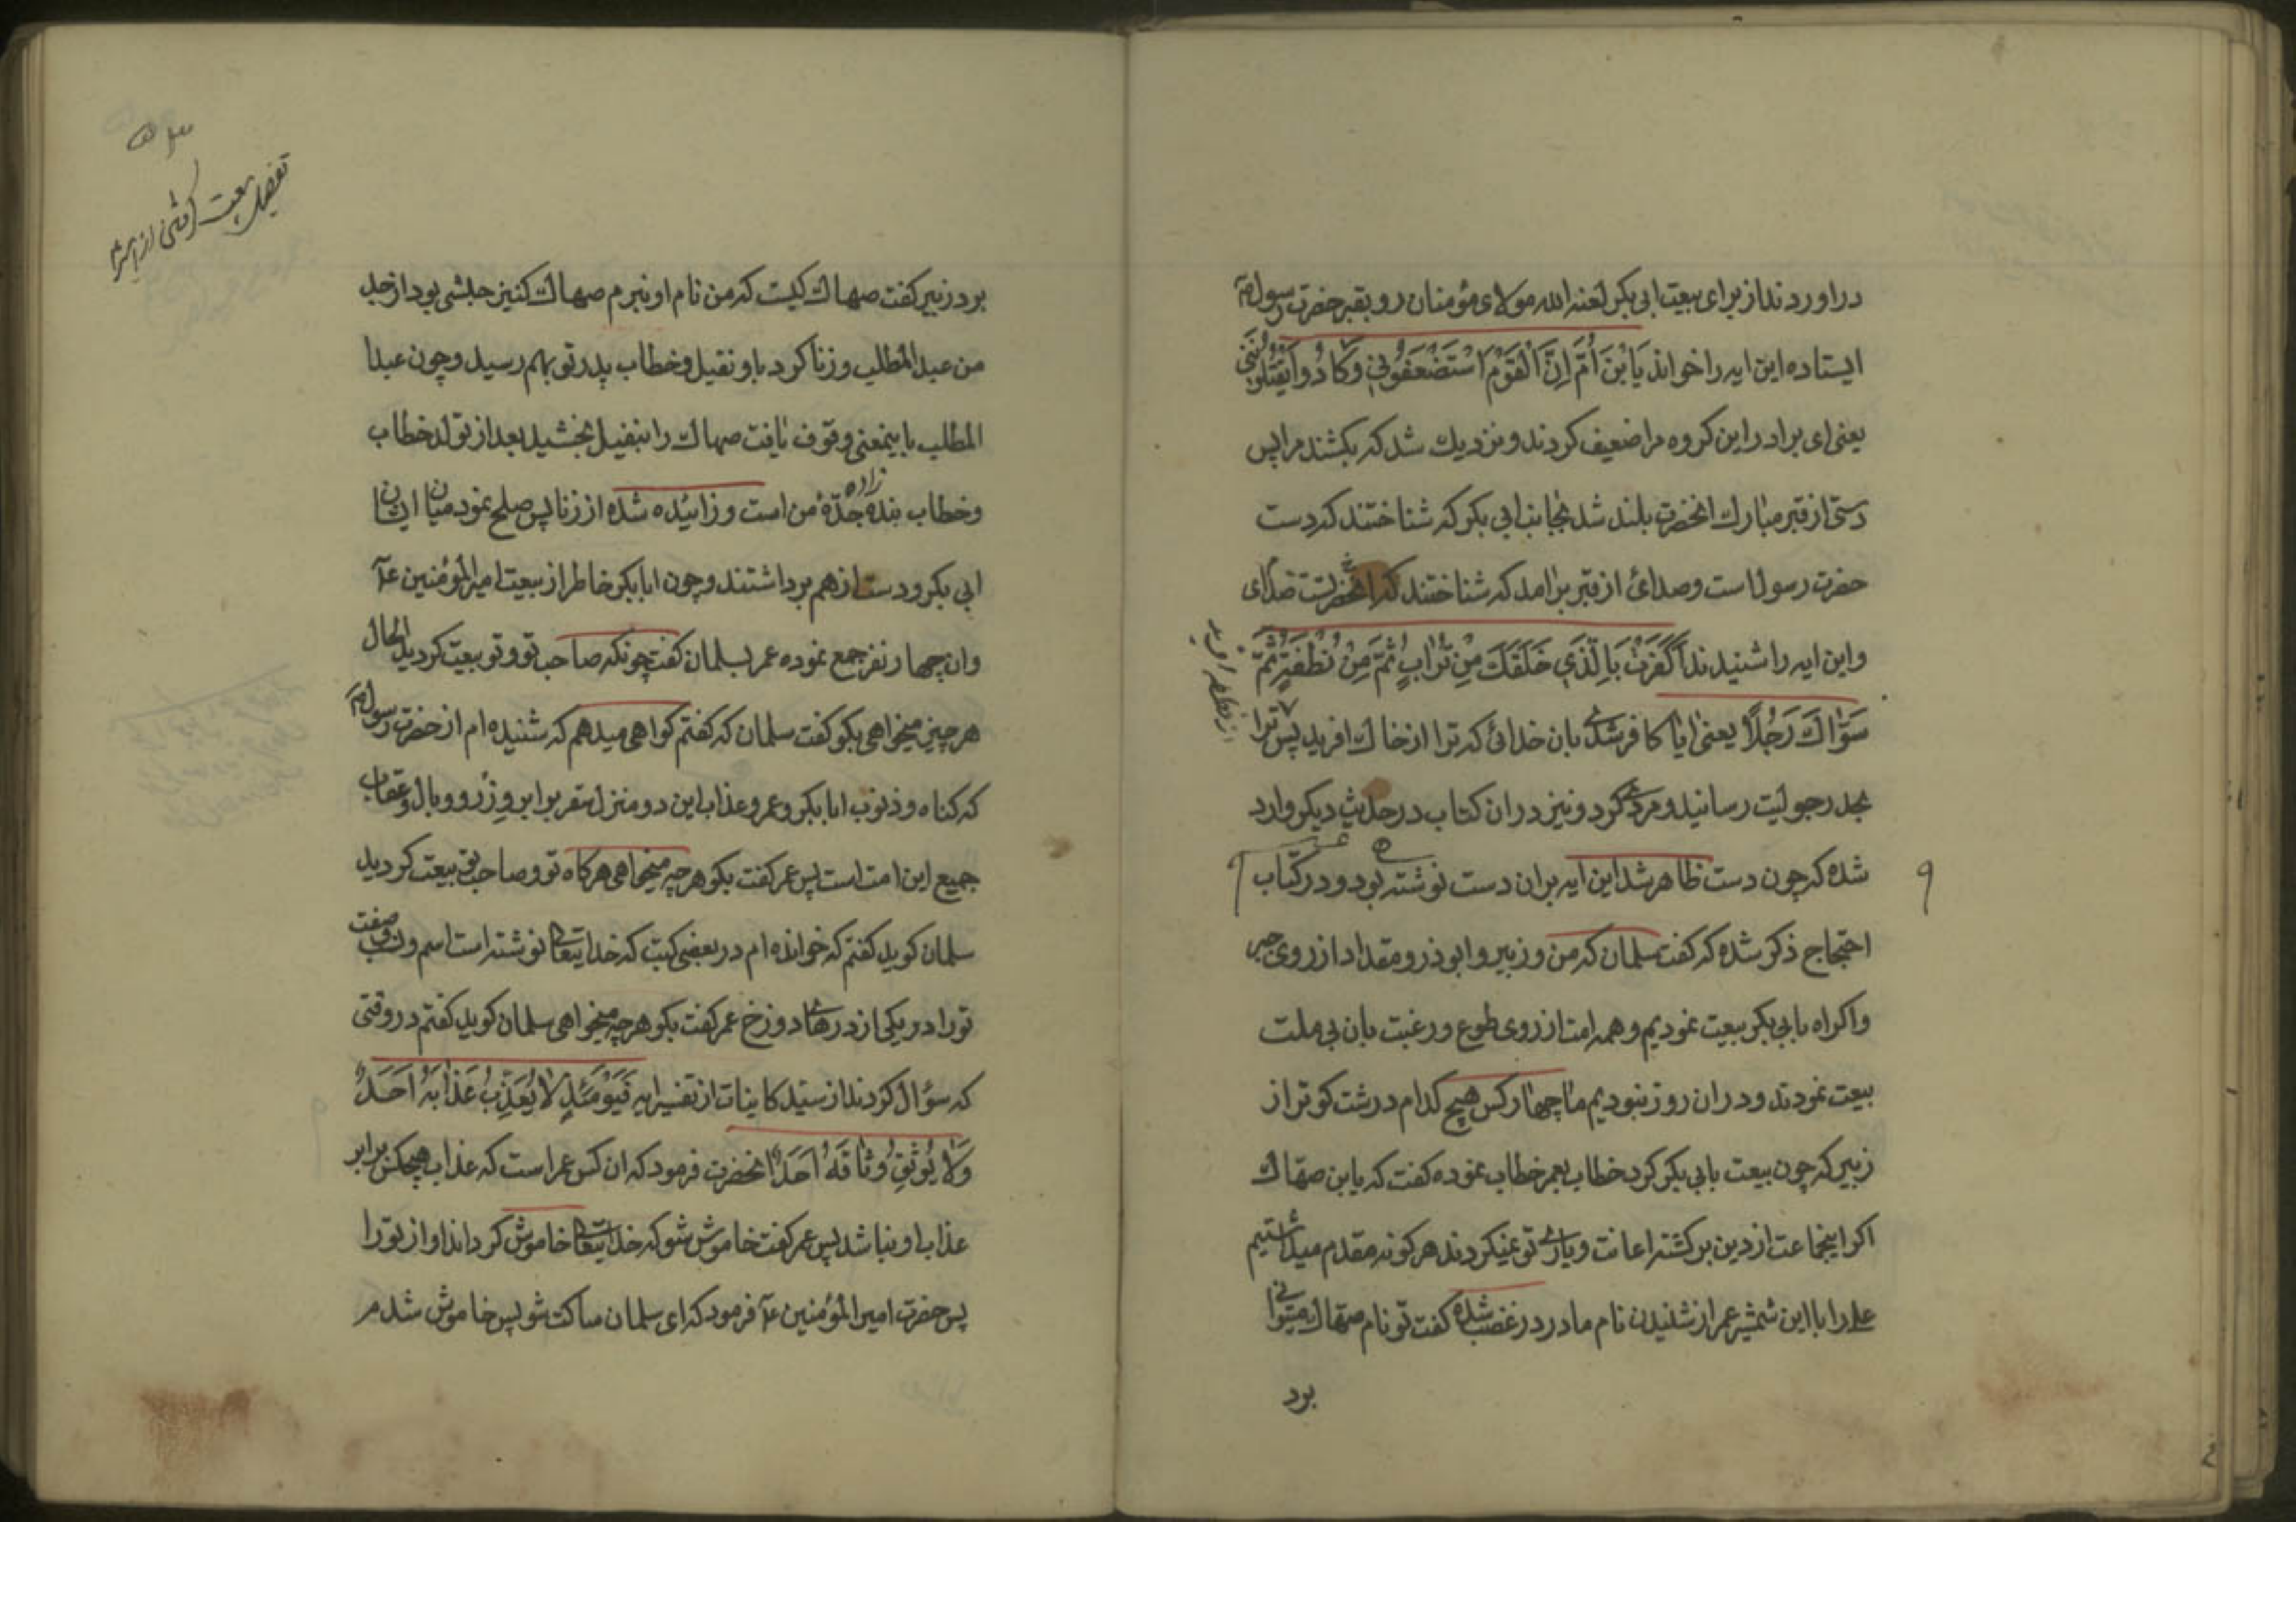 دراوردند از برای بیعت ابی بکر لعنه الله مولای مؤمنان رو بقبر حضرت رسول ص
ایستاده این ایه را خواند یَابْنَ اُمَّ اِنَّ الْقَوْمَ اسْتَضْعَفُونِی وَکَادُوا یَقْتُلُونَنِی
یعنی ای برادر این کروه مرا ضعیف کردند و نزدیك شد که بکشند مرا پس
دستی از قبر مبارك انحضرت بلند شد بجانب ابی بکر که شناختند که دست
حضرت رسول است و صدائی از قبر برامد که شناختند که صدای انحضرتست
و این ایه را شنیدند اَکَفَرْتَ بِالَّذِی خَلَقَكَ مِنْ تُرَابٍ ثُمَّ مِنْ نُطْفَةٍ ثُمَّ
سَوّٰاكَ رَجُلًا یعنی ایا کافر شدی بان خدائی که ترا از خاك افرید پس ترا
از نطفه افرید
بحد رجولیت رسانید و مرد کرد و نیز در ان کتاب در حدیث دیکر وارد
شده که چون دست ظاهر شد این ایه بران دست نوشته بود و در کتاب
احتجاج ذکر شده که کفت سلمان که من و زبیر و ابوذر و مقداد از روی جبر
و اکراه بابی بکر بیعت نمودیم و همه امت از روی طوع و رغبت بان بی ملت
بیعت نمودند و در ان روز نبودیم ما چهار کس هیچ کدام درشت کوتر از
زبیر که چون بیعت بابی بکر کرد خطاب بعمر خطاب نموده کفت که یابن صهاك
اکر اینجماعت از دین برکشته اعانت و یاری تو نمیکردند هر کونه مقدم میداشتیم
علی را با این شمشیر عمر از شنیدن نام مادر در غضب شده کفت تو نام صهاك میتوانی
برد
تفصیل بیعت کرفتن از
برد زبیر کفت صهاك کیست که من نام او نبرم صهاك کنیز حبشی بود از جد
من عبد المطلب و زنا کرد باو نفیل و خطاب پدر تو بهم رسید و چون عبد
المطلب باینمعنی وقوف یافت صهاك را بنفیل بخشید بعد از تولد خطاب
و خطاب بنده زاده جدّهٔ من است و زائیده شده از زنا پس صلح نمود میان ایشان
ابی بکر و دست از هم برداشتند و چون ابابکر خاطر از بیعت امیر المؤمنین ع
و ان چهار نفر جمع نموده عمر بسلمان کفت چونکه صاحب تو و تو بیعت کردید الحال
هر چیز میخواهی بکو کفت سلمان که کفتم کواهی میدهم که شنیده ام از حضرت رسول ص
که کناه و ذنوب ابابکر و عمر و عذاب این دو منزل سقر برابر وزر و وبال و عقاب
جمیع این امت است پس عمر کفت بکو هر چه میخواهی هرکاه تو و صاحب تو بیعت کردید
سلمان کوید کفتم که خوانده ام در بعضی کتب که خدایتعالی نوشته است اسم و نسب و صفت
تو را در یکی از درهای دوزخ عمر کفت بکو هر چه میخواهی سلمان کوید کفتم در وقتی
که سؤال کردند از سیّد کاینات از تفسیر ایه فَیَوْمَئِذٍ لٰا یُعَذِّبُ عَذٰابَهُ اَحَدٌ
وَلٰا یُوثِقُ وَثٰاقَهُ اَحَدٌ انحضرت فرمود که ان کس عمر است که عذاب هیچکس برابر
عذاب او نباشد پس عمر کفت خاموش شو که خدایتعالی خاموش کرداند اواز تو را
پس حضرت امیر المؤمنین ع فرمود که ای سلمان ساکت شو پس خاموش شدم